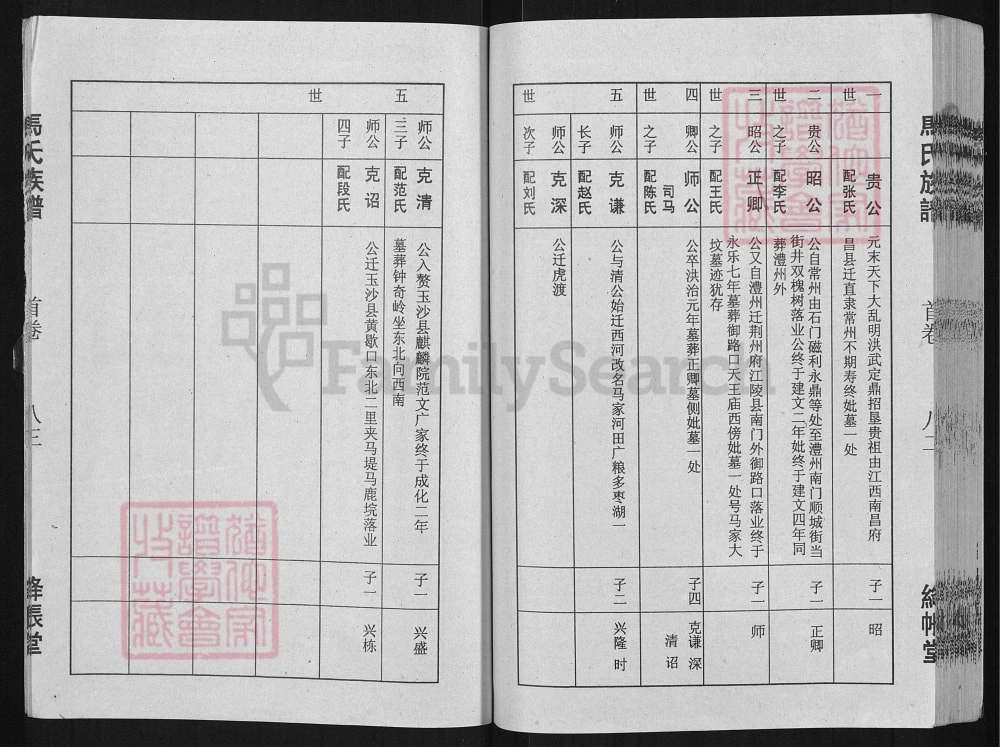 馬氏族譜
首卷
八二
絳帳堂
一世
贵公
配张氏
元末天下大乱明洪武定鼎招垦贵祖由江西南昌府
昌县迁直隶常州不期寿终妣墓一处
子一
昭
二世
贵公
之子
昭公
配李氏
公自常州由石门磁利永鼎等处至澧州南门顺城街当
街井双槐树落业公终于建文二年妣终于建文四年同
葬澧州外
子一
正卿
三世
昭公
之子
正卿
配王氏
公又自澧州迁荆州府江陵县南门外御路口落业终于
永乐七年墓葬御路口天王庙西傍妣墓一处号马家大
坟墓迹犹存
子一
师
四世
卿公
之子
师公
司马
配陈氏
公卒洪治元年墓葬正卿墓侧妣墓一处
子四
克谦 深
清 诏
五世
师公
长子
克谦
配赵氏
公与清公始迁西河改名马家河田广粮多枣湖一
子二
兴隆 时
师公
次子
克深
配刘氏
公迁虎渡
五世
师公
三子
克清
配范氏
公入赘玉沙县麒麟院范文广家终于成化二年
墓葬钟奇岭坐东北向西南
子一
兴盛
师公
四子
克诏
配段氏
公迁玉沙县黄歇口东北二里夹马堤马鹿垸落业
子一
兴栋
馬氏族譜
首卷
八三
絳帳堂
FamilySearch